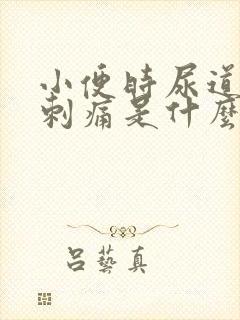 小便時尿道
刺痛是什麼
吕藝真